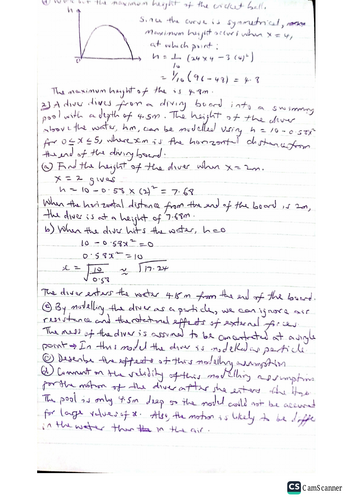 What is the maximum height of the cricket ball.
h
Since the curve is symmetrical,
maximum height occurs when x = 4,
at which point:
h = 1/10 (24×4 - 3(4)²)
= 1/10 (96-48) = 4.8
The maximum height of the is 4.8m.
2) A diver dives from a diving board into a swimming
pool with a depth of 4.5m. The height of the diver
above the water, hm, can be modelled using h = 10 - 0.58x²
for 0 ≤ x ≤ 5, where xm is the horizontal distance from
the end of the diving board.
(a) Find the height of the diver when x = 2m.
x = 2 gives
h = 10 - 0.58 × (2)² = 7.68
When the horizontal distance from the end of the board is 2m,
the diver is at a height of 7.68m.
b) When the diver hits the water, h=0
10 - 0.58x² = 0
0.58x² = 10
x = √10/0.58 ≈ √17.24
The diver enters the water 4.15 m from the end of the board.
(c) By modelling the diver as a particle, we can ignore air
resistance and the rotational effects of external forces
The mass of the diver is assumed to be concentrated at a single
point → In this model the diver is modelled as particle
(c) Describe the effects of this modelling assumption
(d) Comment on the validity of this modelling assumption
for the motion of the diver after she enters the
The pool is only 4.5m deep so the model could not be accurate
for large values of x. Also, the motion is likely to be
in the water than in the air.
CS CamScanner